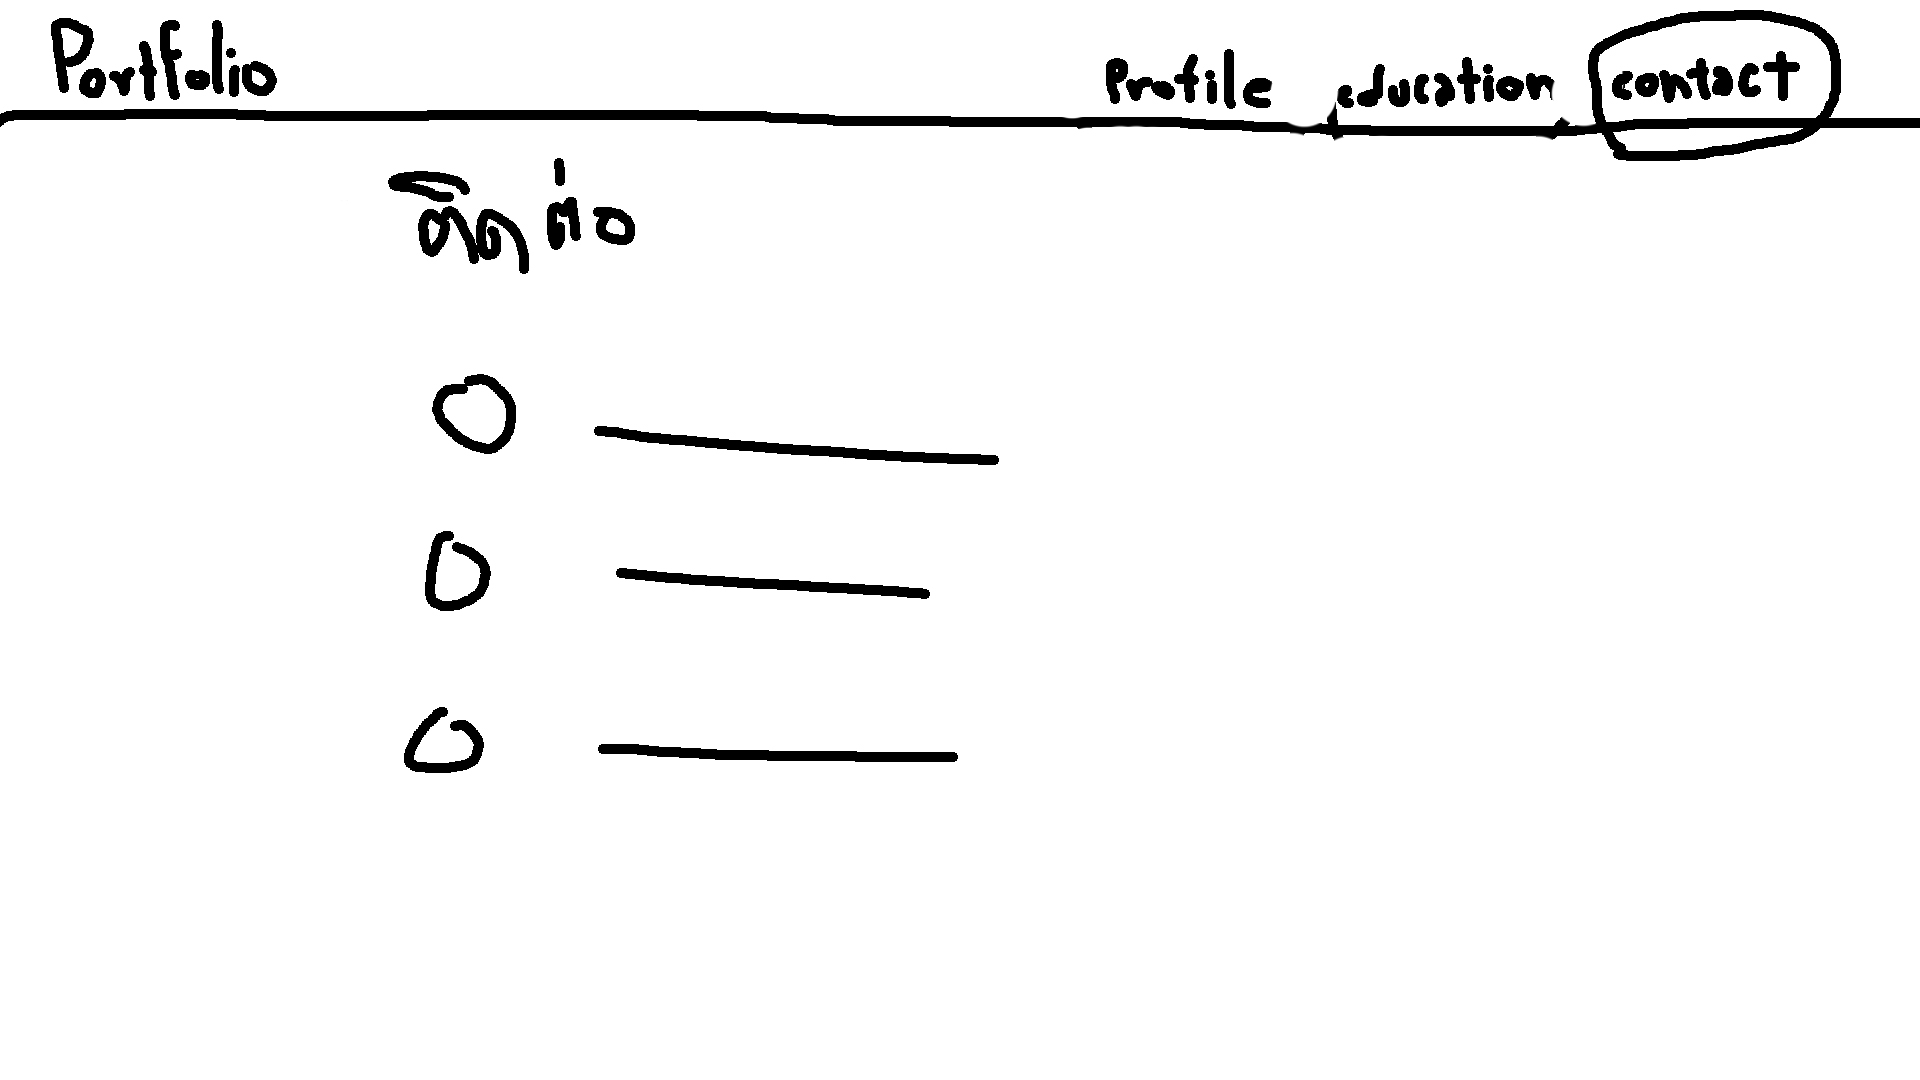 Portfolio Profile education contact
ติดต่อ